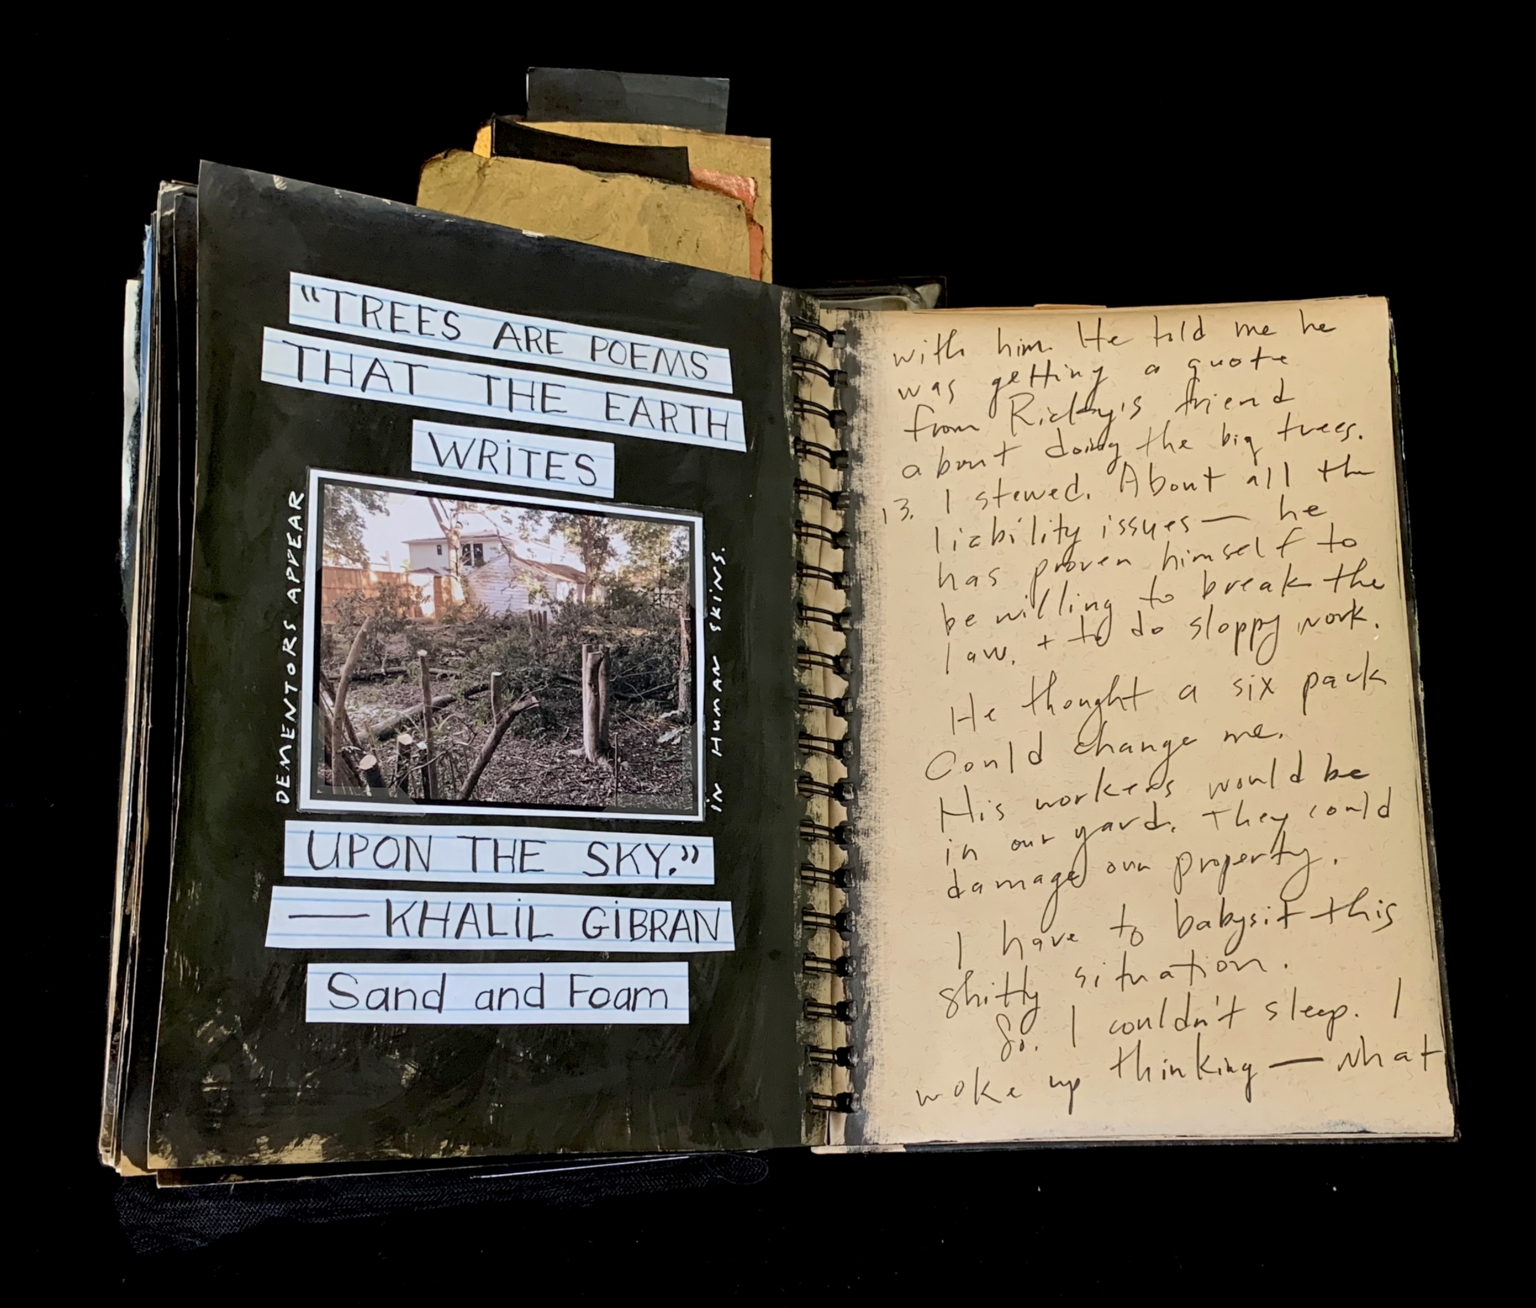 "TREES ARE POEMS
THAT THE EARTH
WRiTES
DEMENTORS APPEAR
iN HUMAN SKiNS.
UPON THE SKY."
— KHALiL GiBRAN
Sand and Foam
with him. He told me he
was getting a quote
from Ricky's friend
about doing the big trees.
13. I stewed. About all the
liability issues — he
has proven himself to
be willing to break the
law. + to do sloppy work.
He thought a six pack
Could change me.
His workers would be
in our yard. They could
damage our property.
I have to babysit this
shitty situation.
So. I couldn't sleep. I
woke up thinking — what